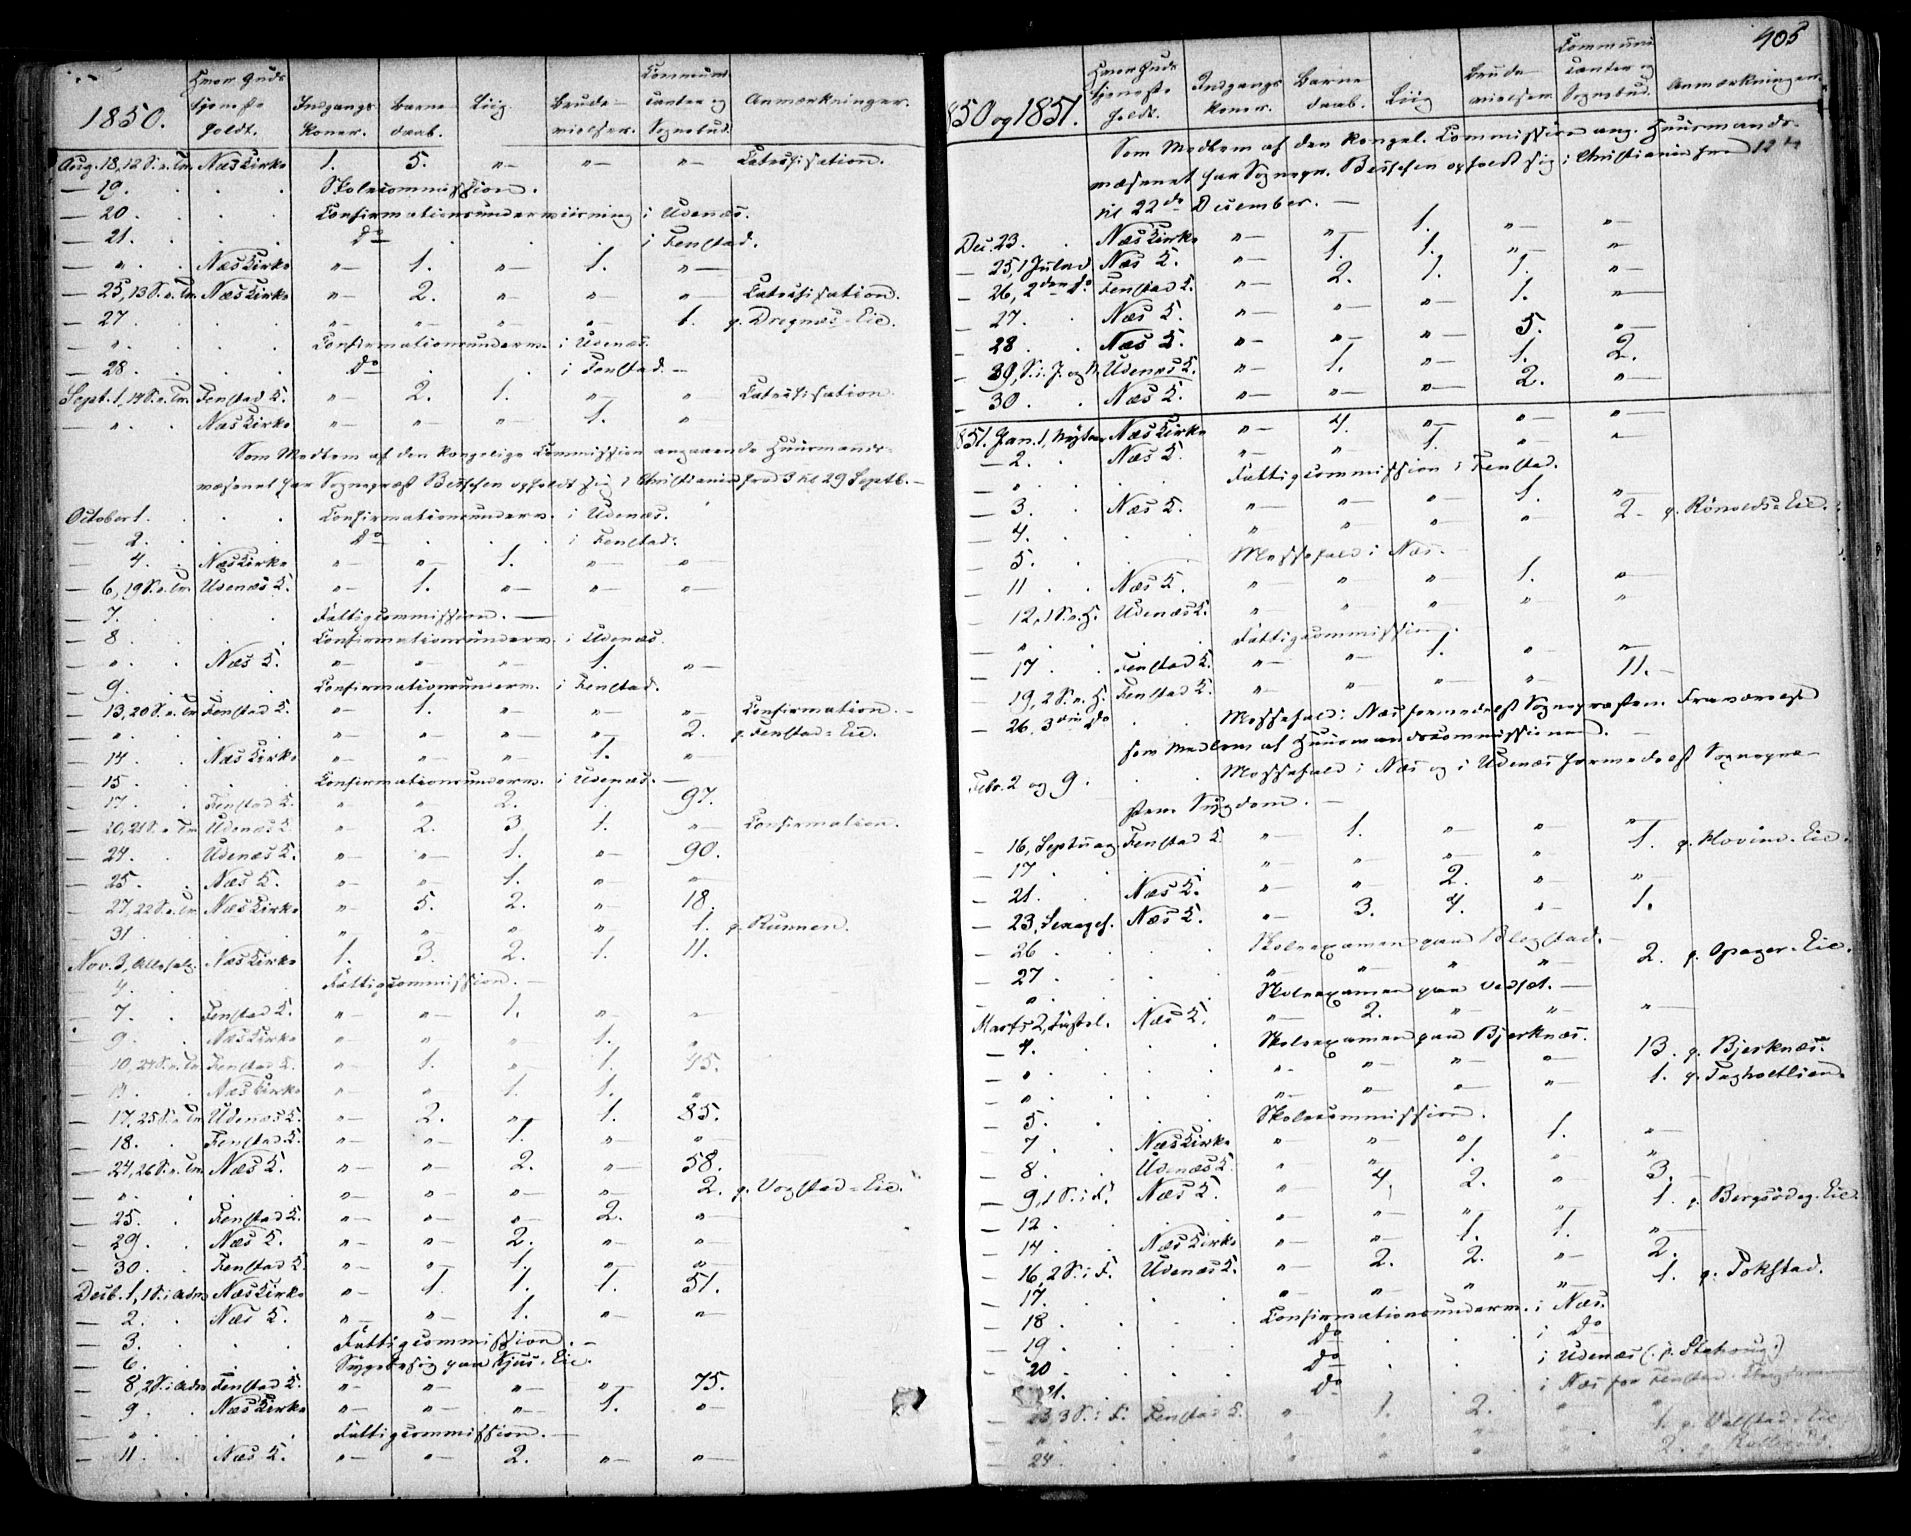 1850.
Hvor Guds
tjeneste
holdt.
Indgangs
Koner.
Barne
daab.
Liig.
Brude-
vielser.
Communi-
canter og
Sognebud
Anmærkninger.
Aug. 18, 12 S. e. Tr. Næs Kirke 1. 5. "— "— "— Catechisation.
— 19. . . Skolecommission.
— 20. . . Confirmationsunderviisning i Udenæs.
— 21. . . Do . . i Fenstad.
— " . Næs Kirke "— 1. "— 1. "—
— 25, 13 S. e. Tr. Næs Kirke "— 2. "— "— "— Catechisation.
— 27. . . "— "— "— "— 1. p. Dregnæs-Eie.
— " . . Confirmationsunderv. i Udenæs.
— 28. . . Do . . i Fenstad. —
Sept. 1, 14 S. e. Tr. Fenstad K. "— 2. 1. "— "— Catechisation
— " . Næs Kirke "— "— "— 1. "
Som Medlem af den kongelige Commission angaaende Huusmands-
væsenet har Sognepræst Betschen opholdt sig i Christiania fra 3 til 29 Septb. —
October 1. . . Confirmationsunderv. i Udenæs.
— 2. . . Do . . i Fenstad.
— 4. Næs Kirke "— "— 1. "— "—
— 6, 19 S. e. Tr. Udenæs K. "— 1. "— "— "—
— 7. . . Fattigcommission. —
— 8 . . Confirmationsunderv. i Udenæs
— " . Næs K. "— "— "— 1. "—
— 9. . . Confirmationsunderv. i Fenstad.
— 13, 20 S. e. Tr. Fenstad K. "— 1. "— "— "— Confirmation. —
— " . . "— "— "— "— 2. p. Fenstad-Eie.
— 14. Næs Kirke "— "— "— 1. "—
— 15. . . Confirmationsunderv. i Udenæs. —
— 17. Fenstad K. "— " 2. 1. 97.
— 20, 21 S. e. Tr. Udenæs K. "— 2. 3. 1. "— Confirmation.
— 24. . Udenæs K. "— "— 1. "— 90.
— 25. . Næs K. "— "— 1. "— "—
— 27, 22 S. e. Tr. Næs Kirke "— 5. 2. "— 18.
— 31 . . "— "— "— "— 1. p. Runnen.
Nov. 3, Allehelg. Næs Kirke 1. 3. 2. 1. 11.
— 4. . . Fattigcommission. —
— 7. . Fenstad K. "— "— 1. "— "—
— 9. . Næs Kirke "— "— "— 1. "—
— 10, 24 S. e. Tr. Fenstad K. "— 1. "— 1. 45.
— 13. . Næs Kirke "— "— 1. 1. "
— 17, 25 S. e. Tr. Udenæs K. "— 2. "— 1. 85.
— 18. . Fenstad K. "— "— 1. "— "—
— 24, 26 S. e. Tr. Næs K. "— "— 2. "— 58.
— " . . "— "— "— "— 2. p. Vogstad-Eie.
— 25. . Fenstad K. "— "— "— 2. "—
— 29. . Næs K. "— "— 2. "— "—
— 30. . Fenstad K. "— "— 1. "— "—
Decb. 1, 1 S. i Adv. Næs Kirke "— 1. 1. 1. 51.
— 2. . Næs K. "— "— 1. "— "—
— 3. . . Fattigcommission. —
— 6. . . Sygebesøg paa Kjus-Eie.
— 8, 2 S. i Adv. Fenstad K. "— "— "— "— 75.
— 9. . Næs Kirke "— "— "— 1. "—
— " . . Fattigcommission. —
— 11. . Næs K. "— "— 2. "— "—
405
850 og 1851.
Hvor Guds
tjeneste
holdt.
Indgangs
koner.
Barne
daab.
Liig
Brude
vielser.
Communi
canter og
Sognebud.
Anmærkninger.
Som Medlem af den kongel. Commission ang. Huusmands-
væsenet har Sognepr. Betschen opholdt sig i Christiania fra 12te
til 22de December. —
Dec. 23. . Næs Kirke "— "— 1. "— "—
— 25, 1 Juled. Næs K. "— 1. 1. "— "—
— 26, 2den Do Fenstad K. "— 2. 1. 1. "—
— 27. . Næs K. "— "— "— 1. "—
— 28 . Næs K. "— "— "— 5. "—
— 29, S. i J. og N. Udenæs K. "— 1. "— 1. 2.
— 30. . Næs K. "— "— "— 2. "—
851. Jan. 1, Nytaar Næs Kirke "— 4. "— "— "—
— 2. . Næs K. "— "— 1. "— "—
— " . . Fattigcommission i Fenstad.
— 3. . Næs K. "— "— "— 1. "—
— 4. . . " " " " 2— p. Rönolds-Eie.
— 5. . . Messefald i Næs.
— 11 . . Næs K. "— "— "— 1. "—
— 12, 1 S. e. H. Udenæs K. "— " " " "
— " . . Fattigcommission.
— 17 . . Fenstad K. "— "— 1. "— "—
— 19, 2 S. e. H. Fenstad K. "— " " " 11. —
— 26, 3die Do . . Messefald i Næs formedelst Sognepræstens Fraværelse
som Medlem af Huusmandscommissionen. —
Febr. 2 og 9. . Messefald i Næs og i Udenæs formedelst Sognepræ-
stens Sygdom. —
— 16, Septuag. Fenstad K. "— 1. "— "— "—
— 17 . . " "— "— " 1. p. Hovind-Eie.
— 21. . Næs K. "— "— 2. " "—
— 23, Sexages. Næs K. "— 3. 4. "— 1.
— 26 . . Skoleexamen paa Blegstad. —
— 27 . . "— "— " "— 2. p. Opager-Eie.
— " . . Skoleexamen paa Vedset. —
Marts 2, Fastel. Næs K. "— 2. "— "— "—
— 4. . . Skoleexamen paa Bjerknæs.
— " . . "— "— "— "— 13. p. Bjerknæs.
— " . . "— "— "— "— 1. p. Tagholtlien.
— 5. . . Skolecommission.
— 7 . . Næs Kirke " "— " 1. "—
— 8 . . Udenæs K. " " 1. " "
— 9, 1 S. i F. Næs K. " 4. 2. "— 3.
— 12 . . "— "— "— "— 1. p. Bergsödeg.-Eie.
— 14 . . Næs Kirke "— "— 1. 1. "—
— 16, 2 S. i F. Udenæs K. "— 2. 2. "— 2.
— 17. . . "— " " "— 1. p. Tokstad.
— 18 . . Confirmationsunderv. i Næs.
— 19 . . Do . . i Do
— 20 . . Do . . i Udenæs
— 21. . . Do . . i Næs for Fenstad.
— 23, 3 S. i F. Fenstad K. "— 1. 2. "— "
— " . . " " " " 1. p. Valstad-Eie
— 24 . . " " " " 2. p.